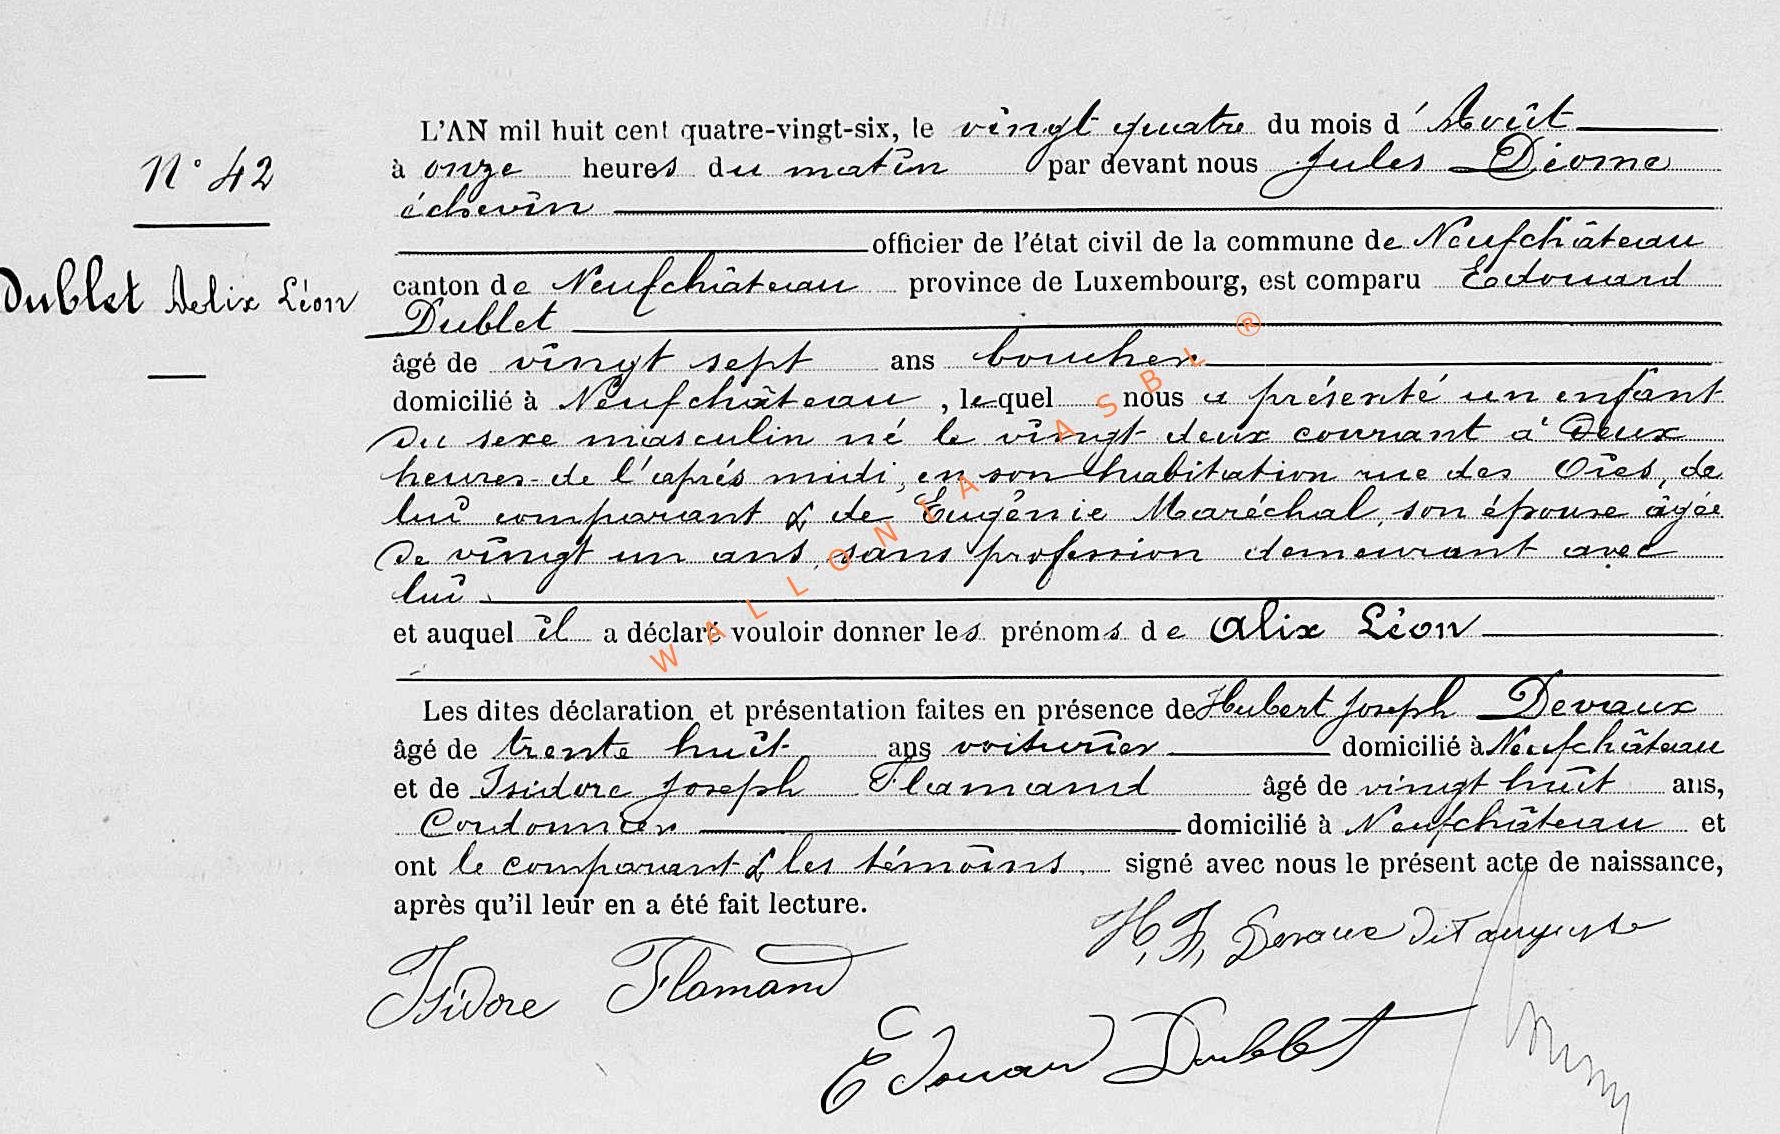 L'AN mil huit cent quatre-vingt-six, le vingt quatre du mois d'Août
N° 42
à onze heures du matin par devant nous Jules Diome
échevin
officier de l'état civil de la commune de Neufchâteau
canton de Neufchâteau province de Luxembourg, est comparu Edouard
Dublet Alix Léon
Dublet
âgé de vingt sept ans boucher
domicilié à Neufchâteau, lequel nous a présenté un enfant
du sexe masculin né le vingt deux courant à Deux
heures de l'après midi, en son habitation rue des Oies, de
lui comparant & de Eugénie Maréchal, son épouse âgée
de vingt un ans, sans profession demeurant avec
lui
et auquel il a déclaré vouloir donner les prénoms de Alix Léon
Les dites déclaration et présentation faites en présence de Hubert Joseph Devaux
âgé de trente huit ans voiturier domicilié à Neufchâteau
et de Isidore Joseph Flamand âgé de vingt huit ans,
Cordonnier domicilié à Neufchâteau et
ont le comparant & les témoins, signé avec nous le présent acte de naissance,
après qu'il leur en a été fait lecture.
H, J, Devaux dit auguste
Isidore Flamand
Edouard Dublet
WALLONIA ASBL ®